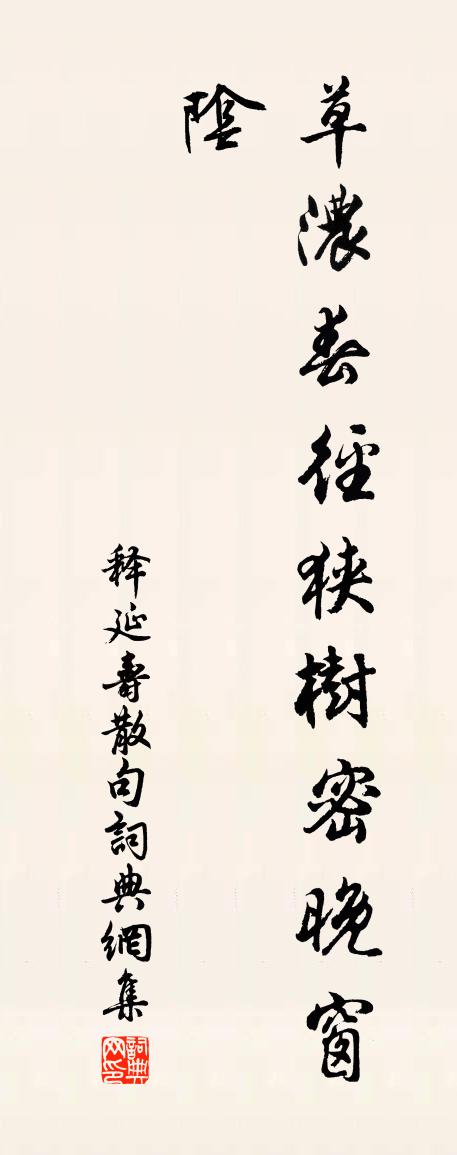 草濃春徑狹樹密晚窗
陰
释延壽散句詞典網集
詞典网印